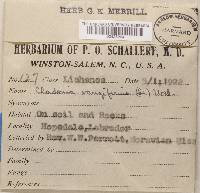 HERB G. K. MERRILL
HERBARIUM OF P. O. SCHALLERT, M. D.
WINSTON-SALEM, N. C., U. S. A.
No. 127 Class Lichenes
Name
Habitat On soil and Rocks
Locality Hopedale, Labrador
Collected by Rev. W. W. Perrett, Moravian Miss
Determined by
Family
Notes
References